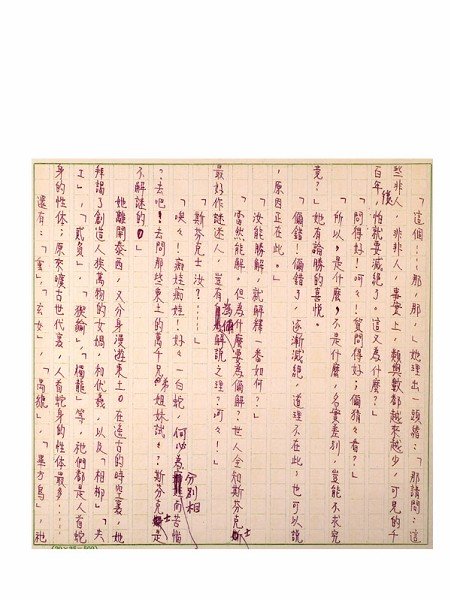 「這個……那，那，」她理出一頭緒：「那請問：這
些非人，非非人，事實上，類與數都越來越少，可見的千
百年後，怕就要滅絕了。這又為什麼？」
「問得好！呵々！質問得好；偏猜，看？」
「所以，是什麼，不是什麼，名實差別，豈能不求究
竟？」她有論勝的喜悅。
「偏錯！偏錯了，逐漸滅絕，道理不在此，也可以說
，原因正在此。」
「汝能勝解，就解釋一番如何？」
「當然能解，但為什麼要為偏解？世人全和斯芬克士
最好作謎迷人，豈有為偏解說之理？呵々！」
「斯芬克士汝？……」
「唉々！痴娃痴娃！好々一白蛇，何必為分別相而苦惱
？去吧！去問那些東土的萬千兄弟姐妹試々？斯芬克士是
不解謎的。」
她離開泰西，又分身漫遊東土。在遠古的時空裏，她
拜謁了創造人類萬物的女媧，和伏羲，以及「相柳」「夫
工」，「貳負」，「猰貐」，「燭龍」等，祂們都是人首蛇
身的性体；原來曠古世代裏，人首蛇身的性体最多……
還有：「玄女」，「禺彊」，「畢方鳥」，祂
(20×25=500)